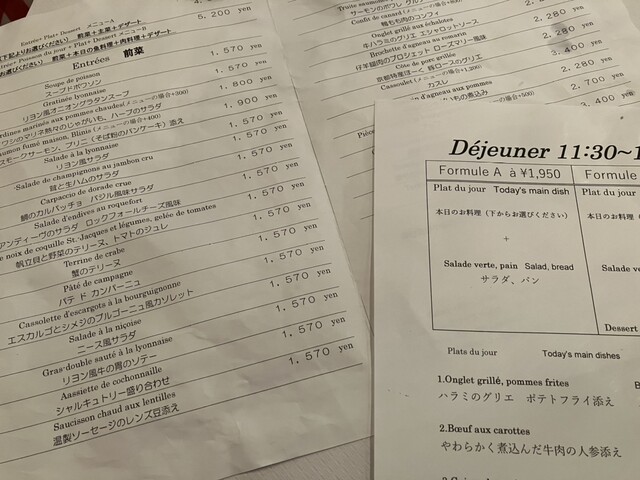 Entrée+ Plat+ Dessert メニュー A
前菜＋主菜＋デザート
5, 200 yen
Entrées 前菜
Soupe de poisson 1, 570 yen
スープドポワソン
Gratinée lyonnaise 1, 570 yen
リヨン風オニオングラタンスープ
marinés aux pommes chaudes(メニューの場合+300) 1, 800 yen
マリネ熱々のじゃがいも、ハーブのサラダ
fumé maison, Blinis (メニューの場合+400) 1, 900 yen
スモークサーモン、ブリニ(そば粉のパンケーキ) 添え
Salade à la lyonnaise 1, 570 yen
リヨン風サラダ
Salade de champignons au jambon cru 1, 570 yen
茸と生ハムのサラダ
Carpaccio de dorade crue 1, 570 yen
鯛のカルパッチョ バジル風味サラダ
Salade d'endives au roquefort 1, 570 yen
アンディーヴのサラダ ロックフォールチーズ風味
de noix de coquille St-Jacques et légumes, gelée de tomates 1, 570 yen
帆立貝と野菜のテリーヌ、トマトのジュレ
Terrine de crabe 1, 570 yen
蟹のテリーヌ
Pâté de campagne 1, 570 yen
パテ ド カンパーニュ
Cassolette d'escargots à la bourguignonne 1, 570 yen
エスカルゴとシメジのブルゴーニュ風カソレット
Salade à la niçoise 1, 570 yen
ニース風サラダ
Gras-double sauté à la lyonnaise 1, 570 yen
リヨン風牛の胃のソテー
Aassiette de cochonnaille 1, 570 yen
シャルキュトリー盛り合わせ
Saucisson chaud aux lentilles 1, 570 yen
温製ソーセージのレンズ豆添え
Confit de canard (メニューの場合+300)
鴨もも肉のコンフィ
Onglet grillé aux échalotes 2, 280
牛ハラミのグリエ エシャロットソース
Brochette d'agneau au romarin 2, 280
仔羊鞍肉のブロシェット ローズマリー風味
Côte de porc grillée 3, 400
Cassoulet 2, 280
カスレ
d'agneau aux pommes 2, 700
3, 400 yen
Déjeuner 11:30~1
Formule A à ¥1,950
Formule
Plat du jour Today's main dish
Plat du jour
本日のお料理（下からお選びください）
本日のお料
+
Salade verte, pain Salad, bread
Salade ve
サラダ、パン
Dessert
Plats du jour Today's main dishes
1.Onglet grillé, pommes frites
ハラミのグリエ ポテトフライ添え
2.Bœuf aux carottes
やわらかく煮込んだ牛肉の人参添え